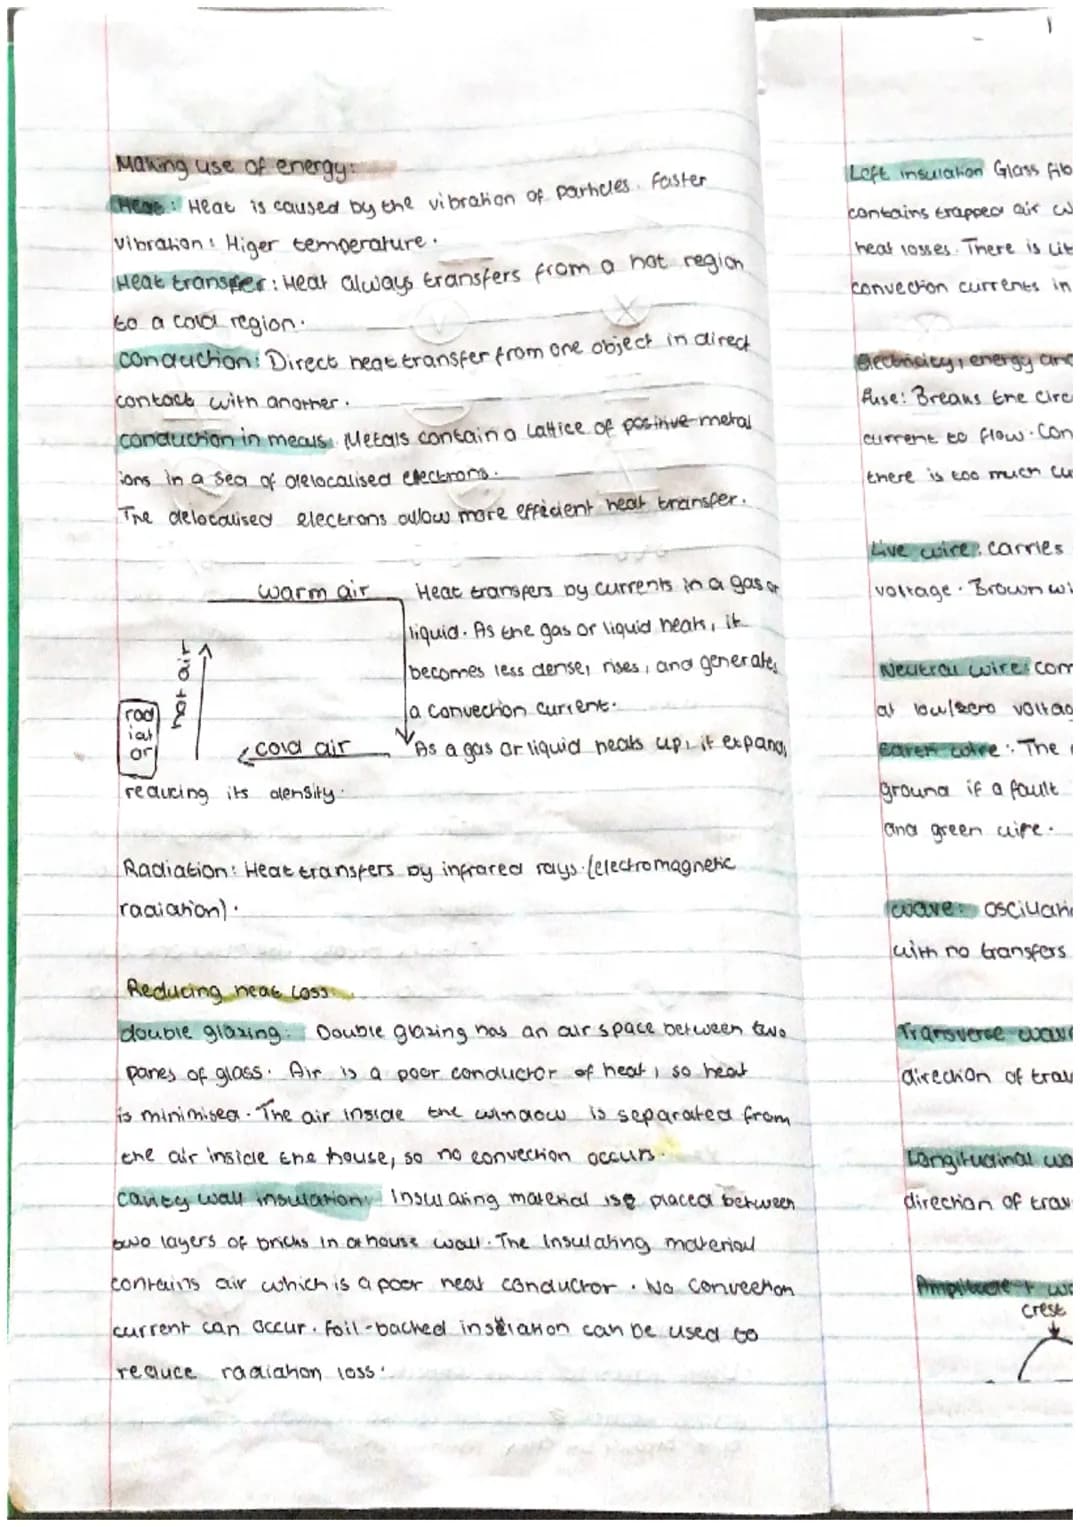 Making use of energy:
Heat: Heat is caused by the vibration of particles. Faster
vibration: Higer temperature.
Heat transfer: Heat always transfers from a hot region
to a cold region.
conduction: Direct heat transfer from one object in direct
contact with another.
conduction in metals: Metals contain a lattice of positive metal
ions in a sea of delocalised electrons.
The delocalised electrons allow more efficient heat transfer.
warm air
hot air
rad
iat
or
cold air
Heat transfers by currents in a gas or
liquid. As the gas or liquid heats, it
becomes less dense, rises, and generates
a convection current.
As a gas or liquid heats up, it expands,
reducing its density.
Radiation: Heat transfers by infrared rays. (electromagnetic
radiation).
Reducing heat loss:
double glazing: Double glazing has an air space between two
panes of glass. Air is a poor conductor of heat, so heat
is minimised. The air inside the window is separated from
the air inside the house, so no convection occurs.
cavity wall insulation: Insulating material is placed between
two layers of bricks in a house wall. The Insulating material
contains air which is a poor heat conductor. No convection
current can occur. Foil-backed insulation can be used to
reduce radiation loss.
1
Loft insulation Glass fib
contains trapped air w
heat losses. There is lit
convection currents in
Electricity, energy and
fuse: Breaks the circ
current to flow. Con
there is too much cu
Live wire: carries
voltage. Brown wi
Neutral wire: com
at low/zero voltag
Earth wire: The
ground if a fault
and green wire.
wave: oscillati
with no transfers
Transverse wave
direction of trav
Longitudinal wa
direction of trav
Amplitude + wa
crest